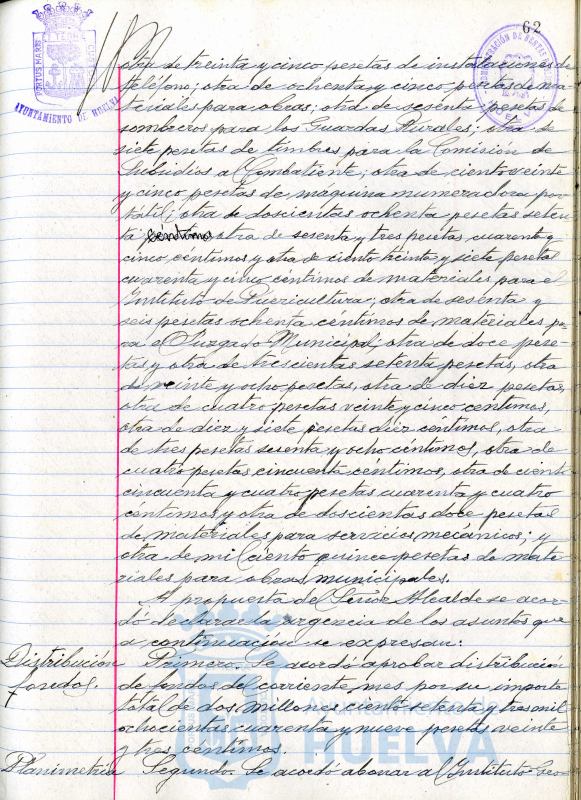 62
AYUNTAMIENTO DE HUELVA
otra de treinta y cinco pesetas de instalaciones de
teléfono; otra de ochenta y cinco pesetas de ma-
teriales para obras; otra de sesenta pesetas de
sombreros para los Guardas Rurales; otra de
siete pesetas de timbres para la Comisión de
Subsidios al Combatiente; otra de ciento veinte
y cinco pesetas de máquina numeradora por-
tátil; otra de doscientas ochenta pesetas seten-
ta céntimos otra de sesenta y tres pesetas cuarenta y
cinco céntimos y otra de ciento treinta y siete pesetas
cuarenta y cinco céntimos de materiales para el
Instituto de Puericultura; otra de sesenta y
seis pesetas ochenta céntimos de materiales pa-
ra el Juzgado Municipal; otra de doce pese-
tas y otra de trescientas setenta pesetas, otra
de veinte y ocho pesetas, otra de diez pesetas,
otra de cuatro pesetas veinte y cinco céntimos,
otra de diez y siete pesetas diez céntimos, otra
de tres pesetas sesenta y ocho céntimos, otra de
cuatro pesetas cincuenta céntimos, otra de ciento
cincuenta y cuatro pesetas cuarenta y cuatro
céntimos y otra de doscientas doce pesetas
de materiales para servicios mecánicos; y
otra de mil ciento quince pesetas de mate-
riales para obras municipales.
A propuesta del Señor Alcalde se acor-
dó declarar la urgencia de los asuntos que
a continuación se expresan:
Distribución fondos.
Primero. Se acordó aprobar distribución
de fondos del corriente mes por su importe
total de dos millones ciento setenta y tres mil
ochocientas cuarenta y nueve pesetas veinte
y tres céntimos.
HUELVA
Planimetría
Segundo. Se acordó abonar al Instituto Geo-